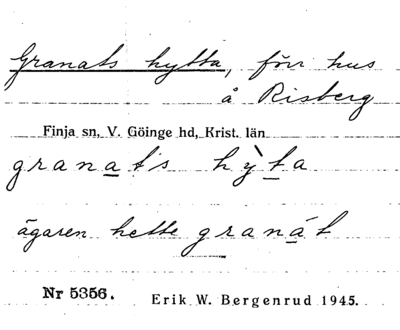 Granats hytta, förr hus
å Risberg
Finja sn, V. Göinge hd, Krist. län
granats hỳta
ägaren hette granát
Nr 5356. Erik W. Bergenrud 1945.